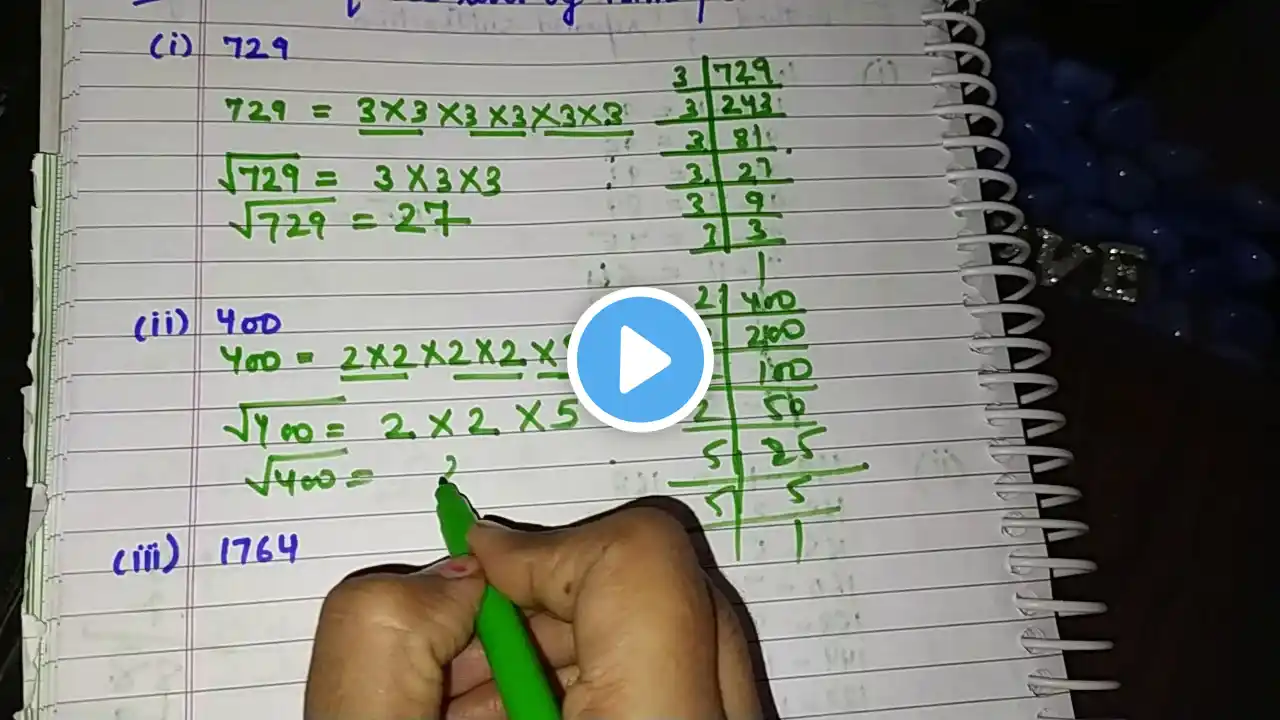 (i) 729
729 = 3×3×3×3×3×3
√729 = 3×3×3
√729 = 27
3 | 729
3 | 243
3 | 81
3 | 27
3 | 9
3 | 3
1
(ii) 400
400 = 2×2×2×2×
√400 = 2×2×5
√400 = 2
2 | 400
200
100
2 | 50
5 | 25
5 | 5
1
(iii) 1764